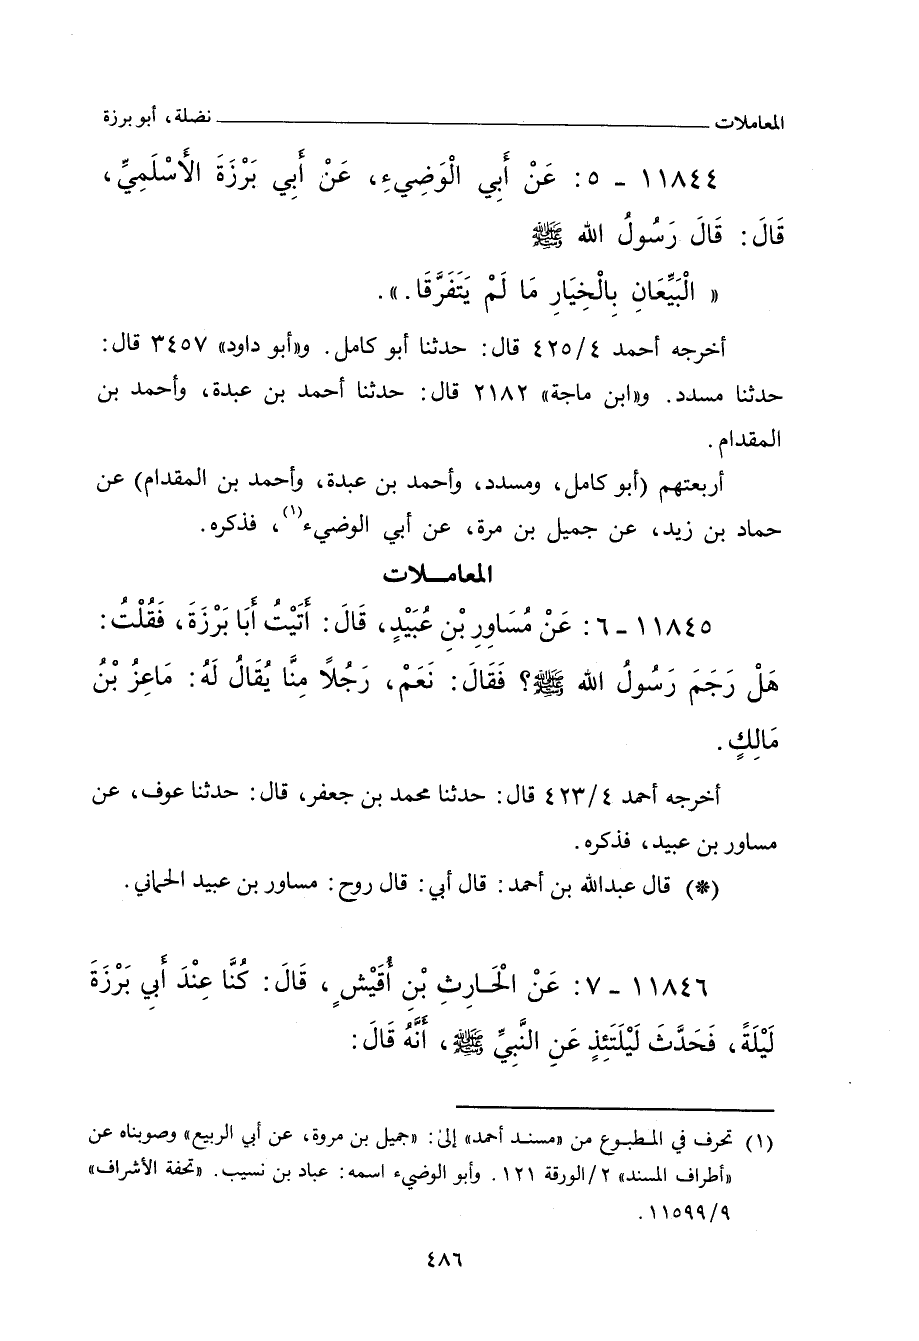 المعاملات ــــــــــــــــــــ نضلة، أبو برزة
١١٨٤٤ - ٥: عَنْ أَبِي الْوَضِيءِ، عَنْ أَبِي بَرْزَةَ الأَسْلَمِيِّ،
قَالَ: قَالَ رَسُولُ الله ﷺ
« الْبَيِّعَانِ بِالْخِيَارِ مَا لَمْ يَتَفَرَّقَا. ».
أخرجه أحمد ٤٢٥/٤ قال: حدثنا أبو كامل. و«أبو داود» ٣٤٥٧ قال:
حدثنا مسدد. و«ابن ماجة» ٢١٨٢ قال: حدثنا أحمد بن عبدة، وأحمد بن
المقدام.
أربعتهم (أبو كامل، ومسدد، وأحمد بن عبدة، وأحمد بن المقدام) عن
حماد بن زيد، عن جميل بن مرة، عن أبي الوضيء(١)، فذكره.
المعاملات
١١٨٤٥ - ٦: عَنْ مُسَاوِرِ بْنِ عُبَيْدٍ، قَالَ: أَتَيْتُ أَبَا بَرْزَةَ، فَقُلْتُ:
هَلْ رَجَمَ رَسُولُ الله ﷺ؟ فَقَالَ: نَعَمْ، رَجُلاً مِنَّا يُقَالُ لَهُ: مَاعِزُ بْنُ
مَالِكٍ.
أخرجه أحمد ٤٢٣/٤ قال: حدثنا محمد بن جعفر، قال: حدثنا عوف، عن
مساور بن عبيد، فذكره.
(*) قال عبدالله بن أحمد: قال أبي: قال روح: مساور بن عبيد الحماني.
١١٨٤٦ - ٧: عَنْ الْحَارِثِ بْنِ أُقَيْشٍ، قَالَ: كُنَّا عِنْدَ أَبِي بَرْزَةَ
لَيْلَةً، فَحَدَّثَ لَيْلَتَئِذٍ عَنِ النَّبِيِّ ﷺ، أَنَّهُ قَالَ:
(١) تحرف في المطبوع من «مسند أحمد» إلى: «جميل بن مروة، عن أبي الربيع» وصوبناه عن
«أطراف المسند» ٢/الورقة ١٢١. وأبو الوضيء اسمه: عباد بن نسيب. «تحفة الأشراف»
١١٥٩٩/٩.
٤٨٦